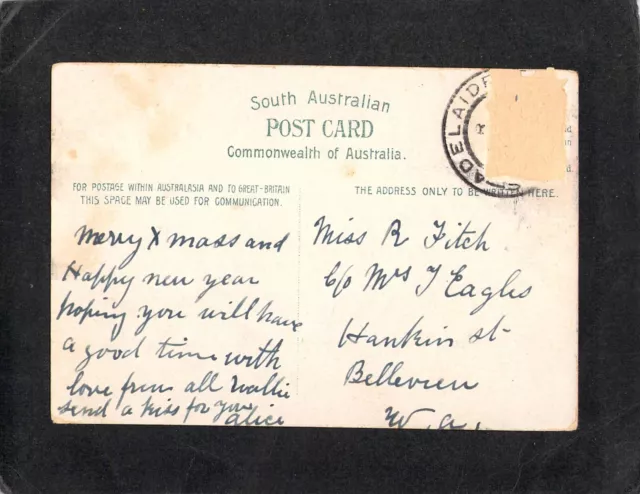 South Australian
POST CARD
Commonwealth of Australia.
ADELAIDE
FOR POSTAGE WITHIN AUSTRALASIA AND TO GREAT-BRITAIN
THIS SPACE MAY BE USED FOR COMMUNICATION.
THE ADDRESS ONLY TO BE WRITTEN HERE.
merry X mass and
Happy new year
hoping you will have
a good time with
love from all Wallie
send a kiss for you
alice
Miss R Fitch
C/o Mrs J Eagles
Hankin st
Bellevue
W.A.